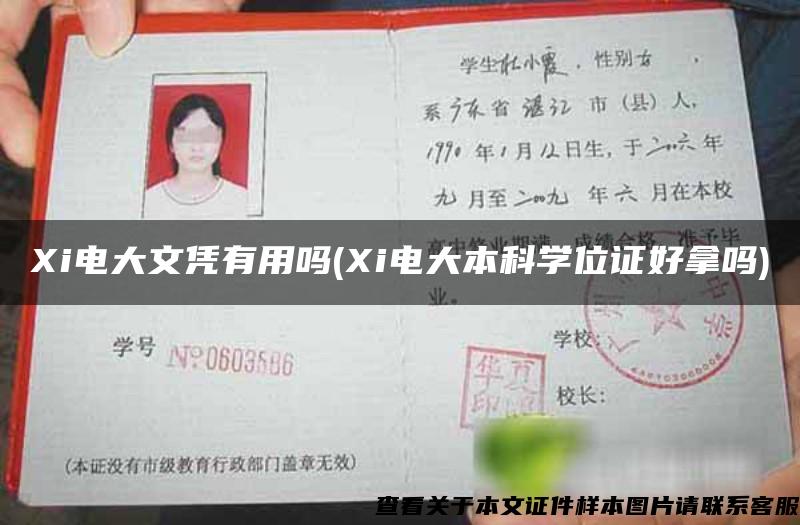 学生杜小霞，性别女，
系广东省湛江市（县）人，
1990年1月12日生，于二〇〇六年
九月至二〇〇九年六月在本校
Xi电大文凭有用吗(Xi电大本科学位证好拿吗)
业。
学号 №0603586
学校：
校长：
华夏
印
(本证没有市级教育行政部门盖章无效)
查看关于本文证件样本图片请联系客服